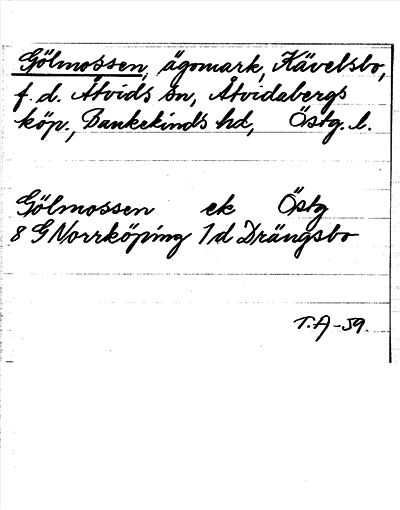 Gölmossen, ägomark, Kävelsbo,
f.d. Åtvids sn, Åtvidabergs
köp., Bankekinds hd, Östg. l.
Gölmossen ek Östg
8 G Norrköping 1d Drängsbo
T.A-59.